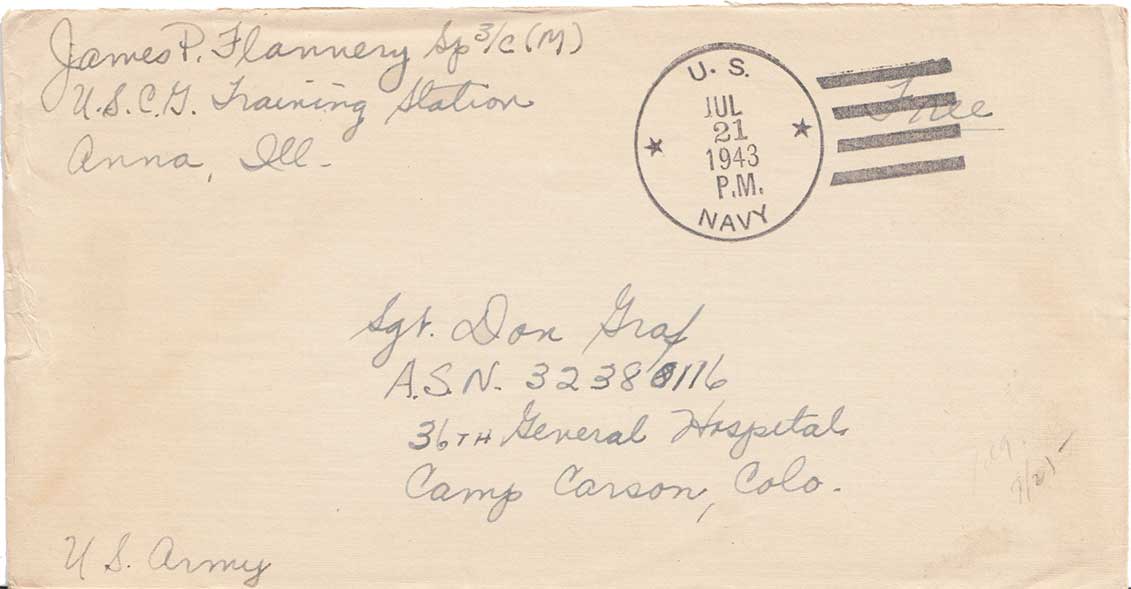 James P. Flannery Sp 3/c (M)
U.S.C.G. Training Station
Anna, Ill.
U. S.
JUL
21
1943
P.M.
NAVY
Free
Sgt. Don Graf
A.S.N. 32380116
36TH General Hospital
Camp Carson, Colo.
U S. Army